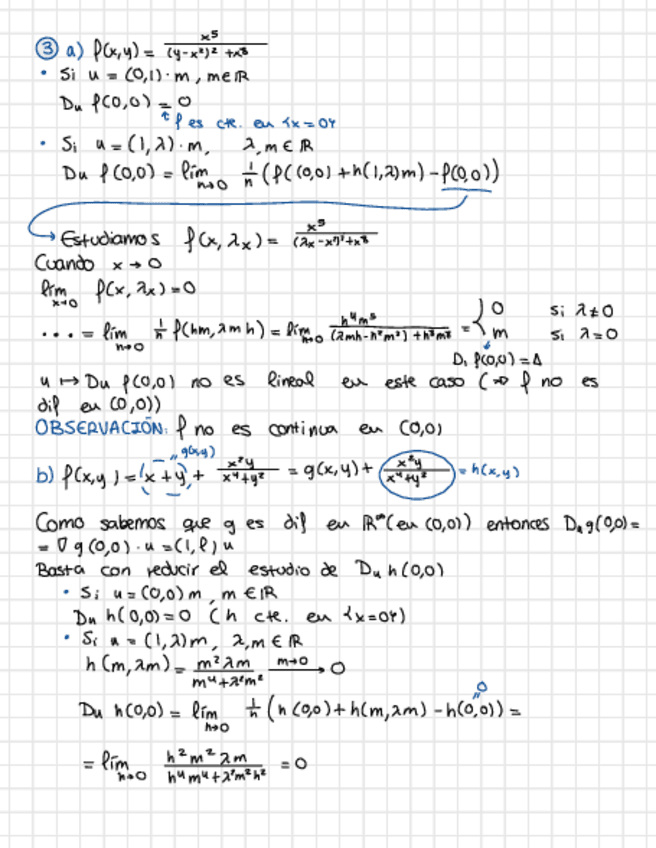 ③ a) f(x,y) = x⁵ / ((y-x²)² + x⁸)
• Si u = (0,1)·m, m∈ℝ
Du f(0,0) = 0
↑ f es cte. en {x=0}
• Si u = (1,λ)·m, λ,m ∈ ℝ
Du f(0,0) = lím h→0 1/h (f((0,0) + h(1,λ)m) - f(0,0))
→ Estudiamos f(x,λx) = x⁵ / ((λx-x²)²+x⁸)
Cuando x → 0
lím x→0 f(x,λx) = 0
... = lím h→0 1/h f(hm,λmh) = lím h→0 h⁴m⁵ / ((λmh-h²m²)+h⁸m⁸) = { 0 si λ≠0
m si λ=0
D₁ f(0,0) = 1
u ↦ Du f(0,0) no es lineal en este caso (⇒ f no es
dif en (0,0))
OBSERVACIÓN: f no es continua en (0,0)
b) f(x,y) = x+y + x²y / (x⁴+y²) = g(x,y) + x²y / (x⁴+y²) = h(x,y)
= g(x,y)
Como sabemos que g es dif en ℝ (en (0,0)) entonces Du g(0,0) =
= ∇g(0,0)·u = (1,1) u
Basta con reducir el estudio de Du h(0,0)
• Si u = (0,0)m, m ∈ ℝ
Du h(0,0) = 0 (h cte. en {x=0})
• Si u = (1,λ)m, λ,m ∈ ℝ
h(m,λm) = m²λm / (m⁴+λ²m²) m→0 → 0
Du h(0,0) = lím h→0 1/h (h(0,0) + h(m,λm) - h(0,0)) =
0
= lím h→0 h²m²λm / (h⁴m⁴+λ²m²h²) = 0